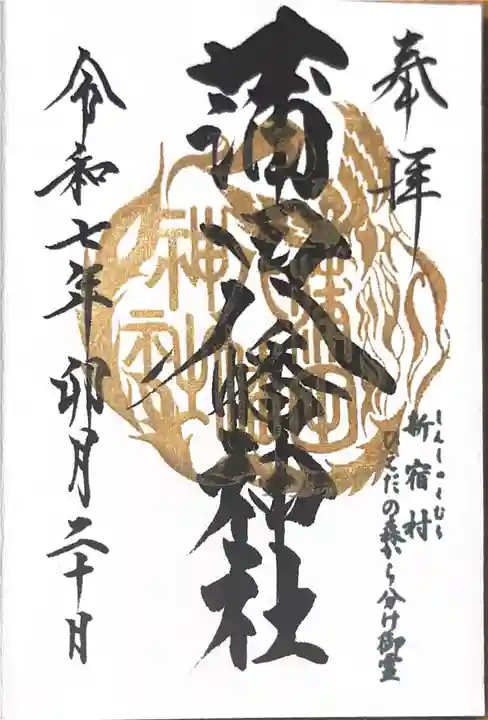 奉拝
新宿村
しんしゅくむら
ひえだの森から分け御霊
蒲田八幡神社
蒲田
八幡
神社
令和七年 卯月二十日